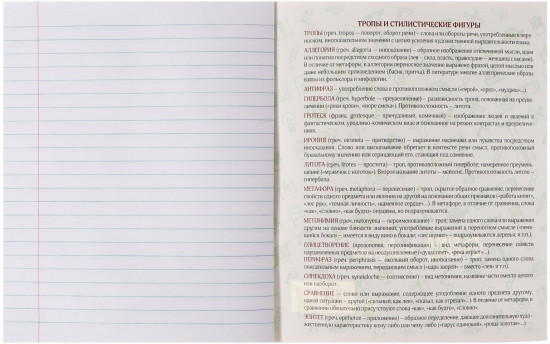 ТРОПЫ И СТИЛИСТИЧЕСКИЕ ФИГУРЫ
ТРОПЫ (греч. tropos – поворот, оборот речи) – слова или обороты речи, употребленные в пере-
носном, иносказательном значении с целью усиления художественной выразительности языка.
АЛЛЕГОРИЯ (греч. allegoria – иносказание) – образное изображение отвлеченной мысли, идеи
или понятия посредством сходного образа (лев – сила, власть; правосудие – женщина с весами).
В отличие от метафоры, в аллегории переносное значение выражено фразой, целой мыслью или
даже небольшим произведением (басня, притча). В литературе многие аллегорические образы
взяты из фольклора и мифологии.
АНТИФРАЗ – употребление слова в противоположном смысле («герой», «орел», «мудрец»...).
ГИПЕРБОЛА (греч. hyperbole – преувеличение) – разновидность тропа, основанная на преувели-
чении («реки крови», «море смеха»). Противоположность – литота.
ГРОТЕСК (франц. grotesque – причудливый, комичный) – изображение людей и явлений в
фантастическом, уродливо-комическом виде и основанное на резких контрастах и преувеличе-
ниях.
ИРОНИЯ (греч. eironeia – притворство) – выражение насмешки или лукавства посредством
иносказания. Слово или высказывание обретает в контексте речи смысл, противоположный
буквальному значению или отрицающий его, ставящий под сомнение.
ЛИТОТА (греч. litotes – простота) – троп, противоположный гиперболе; намеренное преуменьш-
ение («мужичок с ноготок»). Второе название литоты – мейосис. Противоположность литоте –
гипербола.
МЕТАФОРА (греч. metaphora – перенесение) – троп, скрытое образное сравнение, перенесение
свойств одного предмета или явления на другой на основании общих признаков («работа кипит»,
«лес рук», «темная личность», «каменное сердце»...). В метафоре, в отличие от сравнения, слова
«как», «словно», «как будто» опущены, но подразумеваются.
МЕТОНИМИЯ (греч. metonymia – переименование) – троп: замена одного слова или выражения
другим на основе близости значений; употребление выражений в переносном смысле («пеня-
щийся бокал» – имеется в виду вино в бокале; «лес шумит» – подразумеваются деревья; и т.п.).
ОЛИЦЕТВОРЕНИЕ (прозопопея, персонификация) – вид метафоры, перенесение свойств
одушевленных предметов на неодушевленные («душа поет», «река играет»...).
ПЕРИФРАЗ (греч. periphrasis – окольный оборот, иносказание) – троп: замена одного слова
описательным выражением, передающим смысл («царь зверей» – вместо «лев» и т.п.).
СИНЕКДОХА (греч. synekdoche – соотнесение) – вид метонимии, название части вместо целого
или наоборот.
СРАВНЕНИЕ – слово или выражение, содержащее уподобление одного предмета другому,
одной ситуации – другой («сильный, как лев», «сказал, как отрезал»...). В отличие от метафоры, в
сравнении обязательно присутствуют слова «как», «как будто», «словно».
ЭПИТЕТ (греч. epitheton – приложение) – образное определение, дающее дополнительную худо-
жественную характеристику кому-либо или чему-либо («парус одинокий», «роща золотая»...).